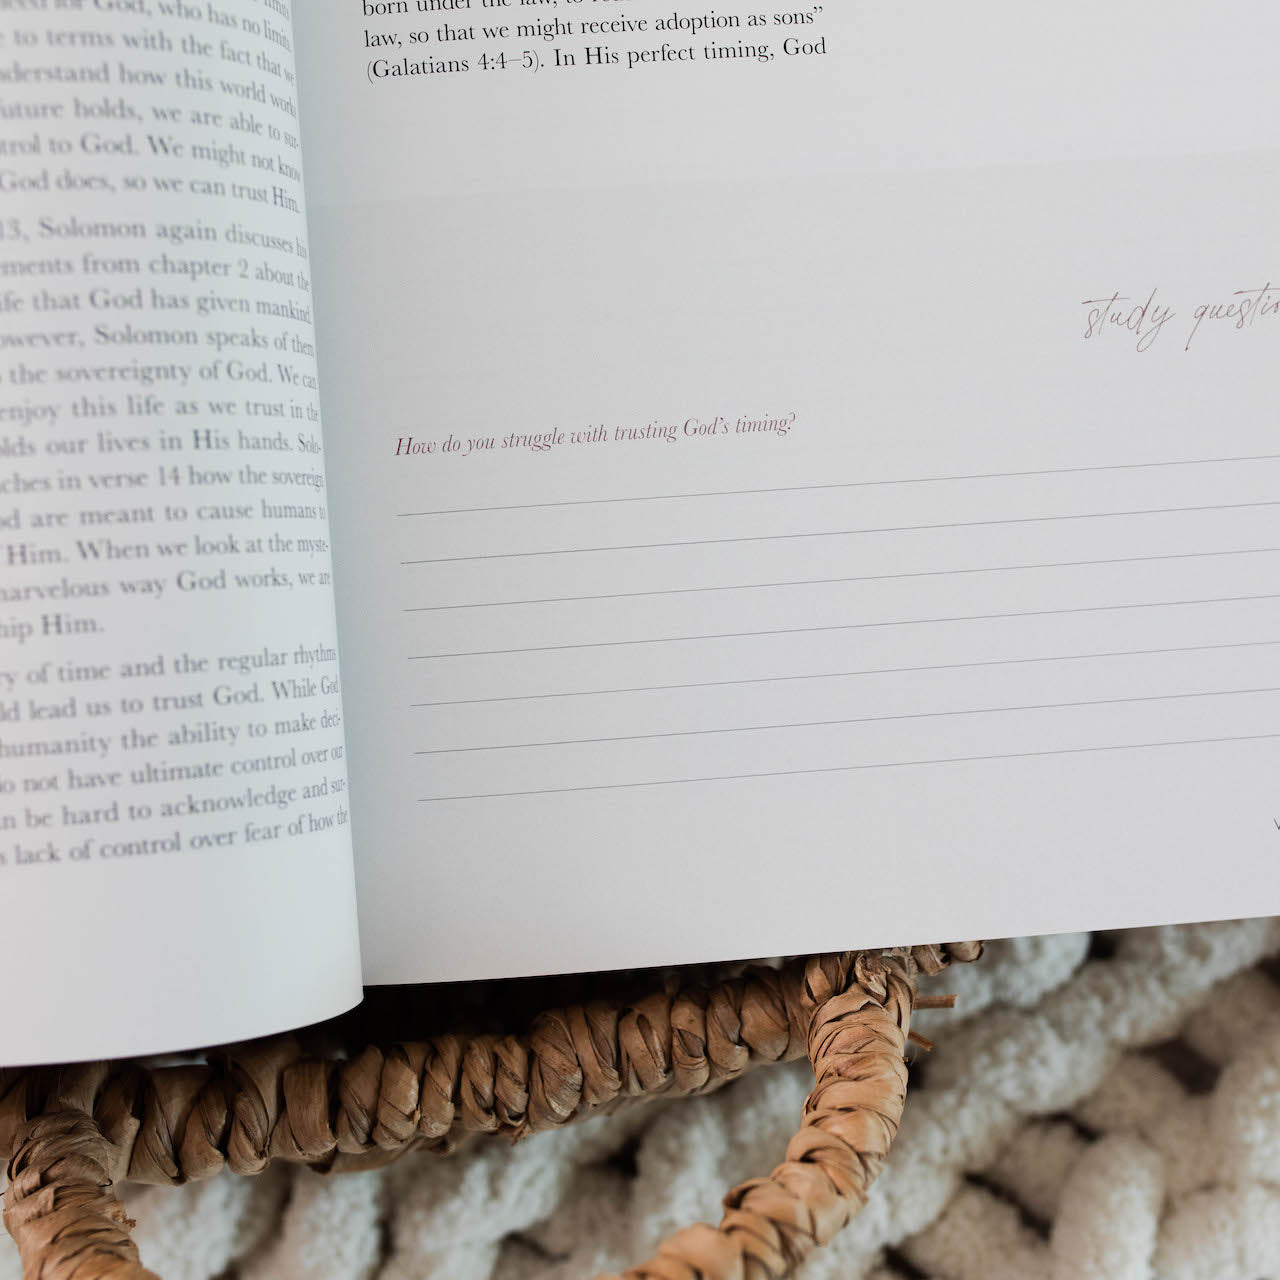 for God, who has no limits,
to terms with the fact that we
how this world works
holds, we are able to sur-
to God. We might not know
God does, so we can trust Him.
13, Solomon again discusses his
from chapter 2 about the
that God has given mankind.
Solomon speaks of them
the sovereignty of God. We can
enjoy this life as we trust in the
our lives in His hands. Solo-
in verse 14 how the sovereign
are meant to cause humans to
Him. When we look at the myste-
marvelous way God works, we are
Him.
of time and the regular rhythms
lead us to trust God. While God
humanity the ability to make deci-
not have ultimate control over our
be hard to acknowledge and sur-
lack of control over fear of how the
born under the law, to
law, so that we might receive adoption as sons”
(Galatians 4:4–5). In His perfect timing, God
study questio
How do you struggle with trusting God’s timing?